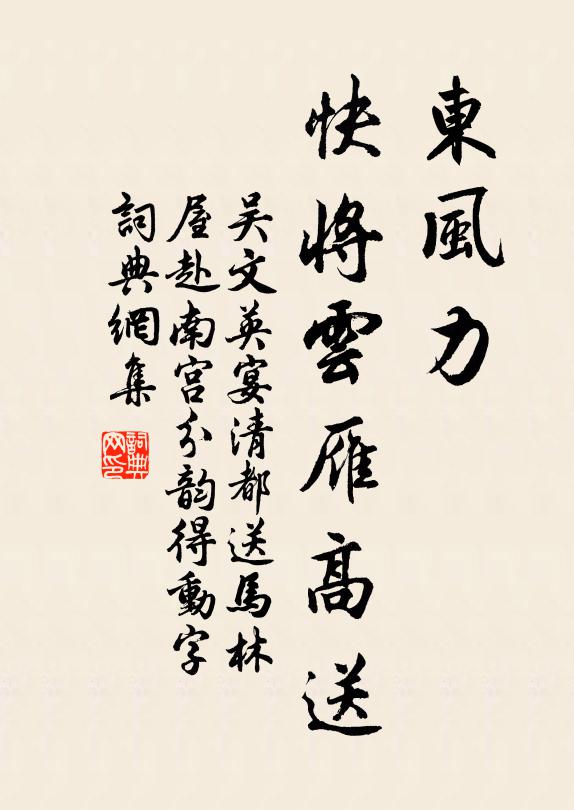 東風力
快將雲雁高送
吴文英宴清都送馬林
屋赴南宫分韵得動字
詞典網集
詞典网印